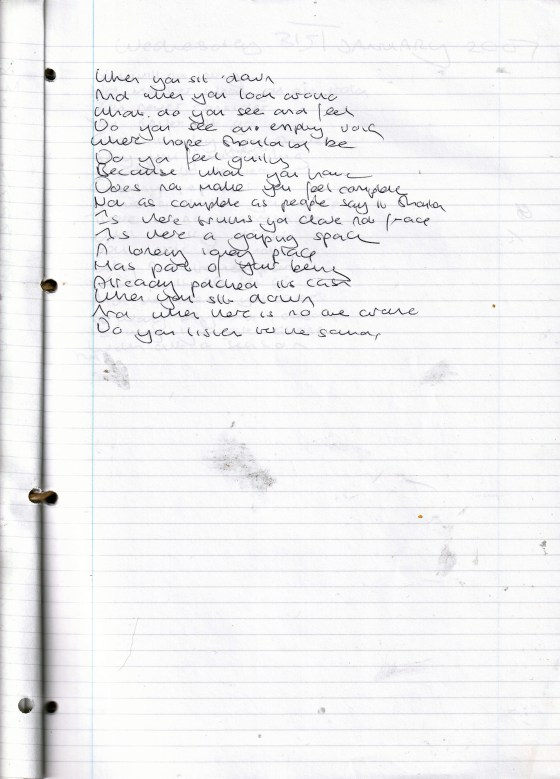 Wednesday 31st January 2007
When you sit down
And when you look around
What do you see and feel
Do you see an empty void
Where hope should be
Do you feel guilty
Because what you have
Does not make you feel complete
Not as complete as people say it should
Is there you not face
Is there a gaping space
A lonely place
Has part of your being
Already packed its case
When you sit down
And when there is no one around
Do you listen to the sound,